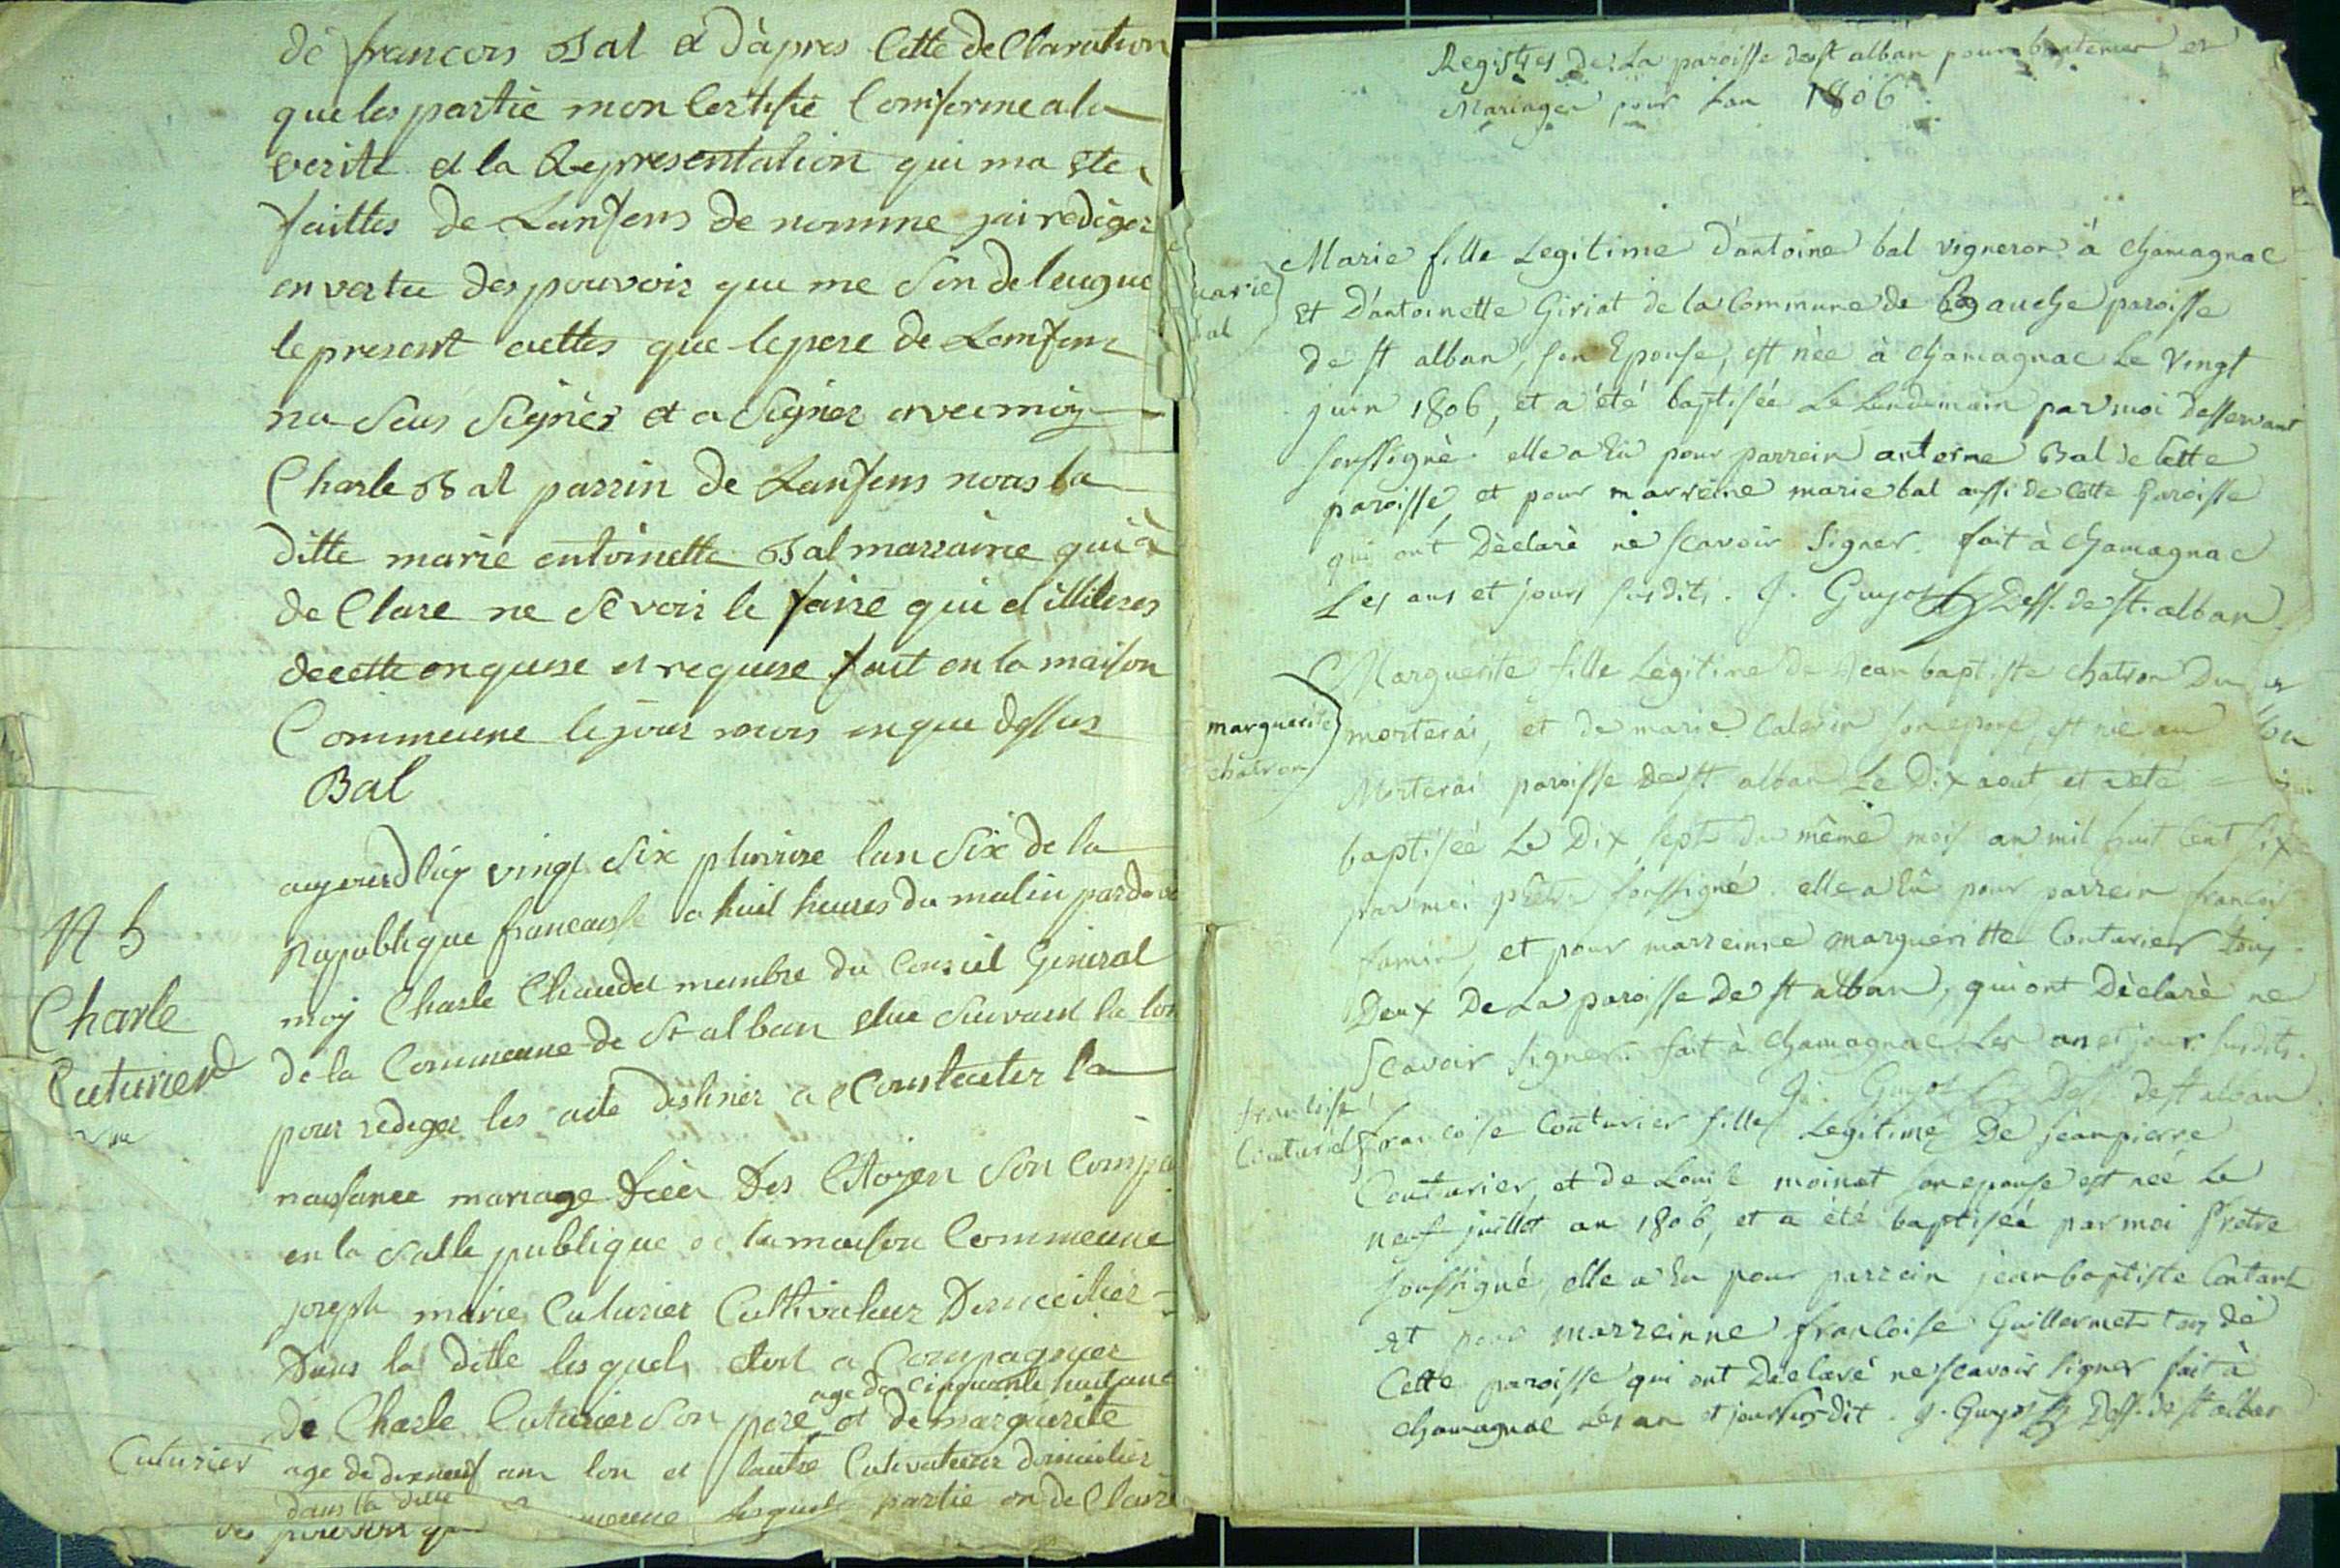 de francois Bal et dàpres Cette de Claration
que les partie mon Certifié Comforme a la
verité et la Representation qui ma ete
faittes de Lanfens de nomme jai rediger
en vertu des pouvoir que me son delengue
le present acttes que le pere de Lemfens
na Seus Signér et a Signer avec moy
Charle Bal parrin de Lanfens nous la
ditte marie entoinette Bal marraine qui à
de Clare ne Sevoir le faire qui et illiteres
de cette enquise et requise fait en la maison
Commeune le jour mois en que dessus
Bal
N 5
Charle
Cuturier
aujourdhuy vingt Six pluviose lan Six de la
Republique francaisse a huit heures du matin par de
moy Charle Chaudet membre du Conseil General
de la Commeune de St alban elue Suivant la loi
pour rediger les acte destiner a Constecter la
naissance mariage Décér Des Citoyen Son Compa
en la Salle publique de la maison Commeune
joseph marie Cuturier Cultivateur Domicilier
Dans la ditte lesquels etoit a Compagnier
age de cinquante huit ane
de Charle Cuturier Son pere et de marguerite
Cuturier age de dixneuf ane lon et lautre Cutivateur domicilier
dans la ditte lesquels partie on de Clare
Registres de La paroisse de st alban pour baptemes et
Mariages pour Lan 1806.
marie
bal
Marie fille Legitime d'antoine bal vigneron à Chamagnac
Et D'antoinette Giriat de la Commune de auche paroisse
de st alban, son Epouse, est née à Chamagnac Le Vingt
juin 1806, et a été baptisée Le Lendemain par moi desservant
soussigné. elle a Eu pour parrein antoine Bal de Cette
paroisse, et pour marreine marie bal aussi de Cette Paroisse
qui ont Déclaré ne scavoir Signer. fait à Chamagnac
Les ans et jours susdits. J. Guyot Dess. de st. alban
marguerite
chatron
Marguerite fille Legitime de Jean baptiste chatron Du
morterai, et de marie Calerin son epouse, est née au
Morterai paroisse de st alban Le Dix aout et a eté
baptisée Le Dix sept du même mois an mil huit Cent six
par moi prêtre soussigné. elle a Eû pour parrein francois
et pour marreinne margueritte Couturier tous
Deux De La paroisse De st alban, qui ont Déclaré ne
Scavoir signer. fait à Chamagnac Les an et jour susdits.
J. Guyot Dess de st alban
francoise
Couturier
francoise Couturier fille Legitime De jean pierre
Couturier, et de Louise moinat son epouse est née Le
neuf juillet an 1806, et a été baptisée par moi Pretre
soussigné, elle a Eu pour parrein jean baptiste Contant
et pour marreinne francoise Guillermet tous de
Cette paroisse qui ont Déclaré ne scavoir signer fait à
Chamagnac Les an et jour susdit. J. Guyot Dess. de st alban